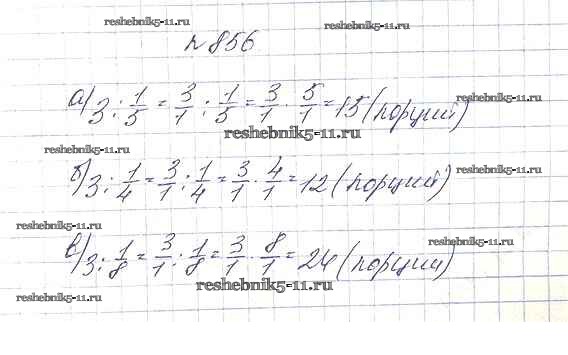 reshebnik5-11.ru
reshebnik5-11.ru
№ 856
reshebnik5-11.ru
а) 3 : 1/5 = 3/1 : 1/5 = 3/1 · 5/1 = 15 (порций)
reshebnik5-11.ru
reshebnik5-11.ru
reshebnik5-11.ru
б) 3 : 1/4 = 3/1 : 1/4 = 3/1 · 4/1 = 12 (порций)
reshebnik5-11.ru
reshebnik5-11.ru
в) 3 : 1/8 = 3/1 : 1/8 = 3/1 · 8/1 = 24 (порций)
reshebnik5-11.ru
reshebnik5-11.ru
reshebnik5-11.ru